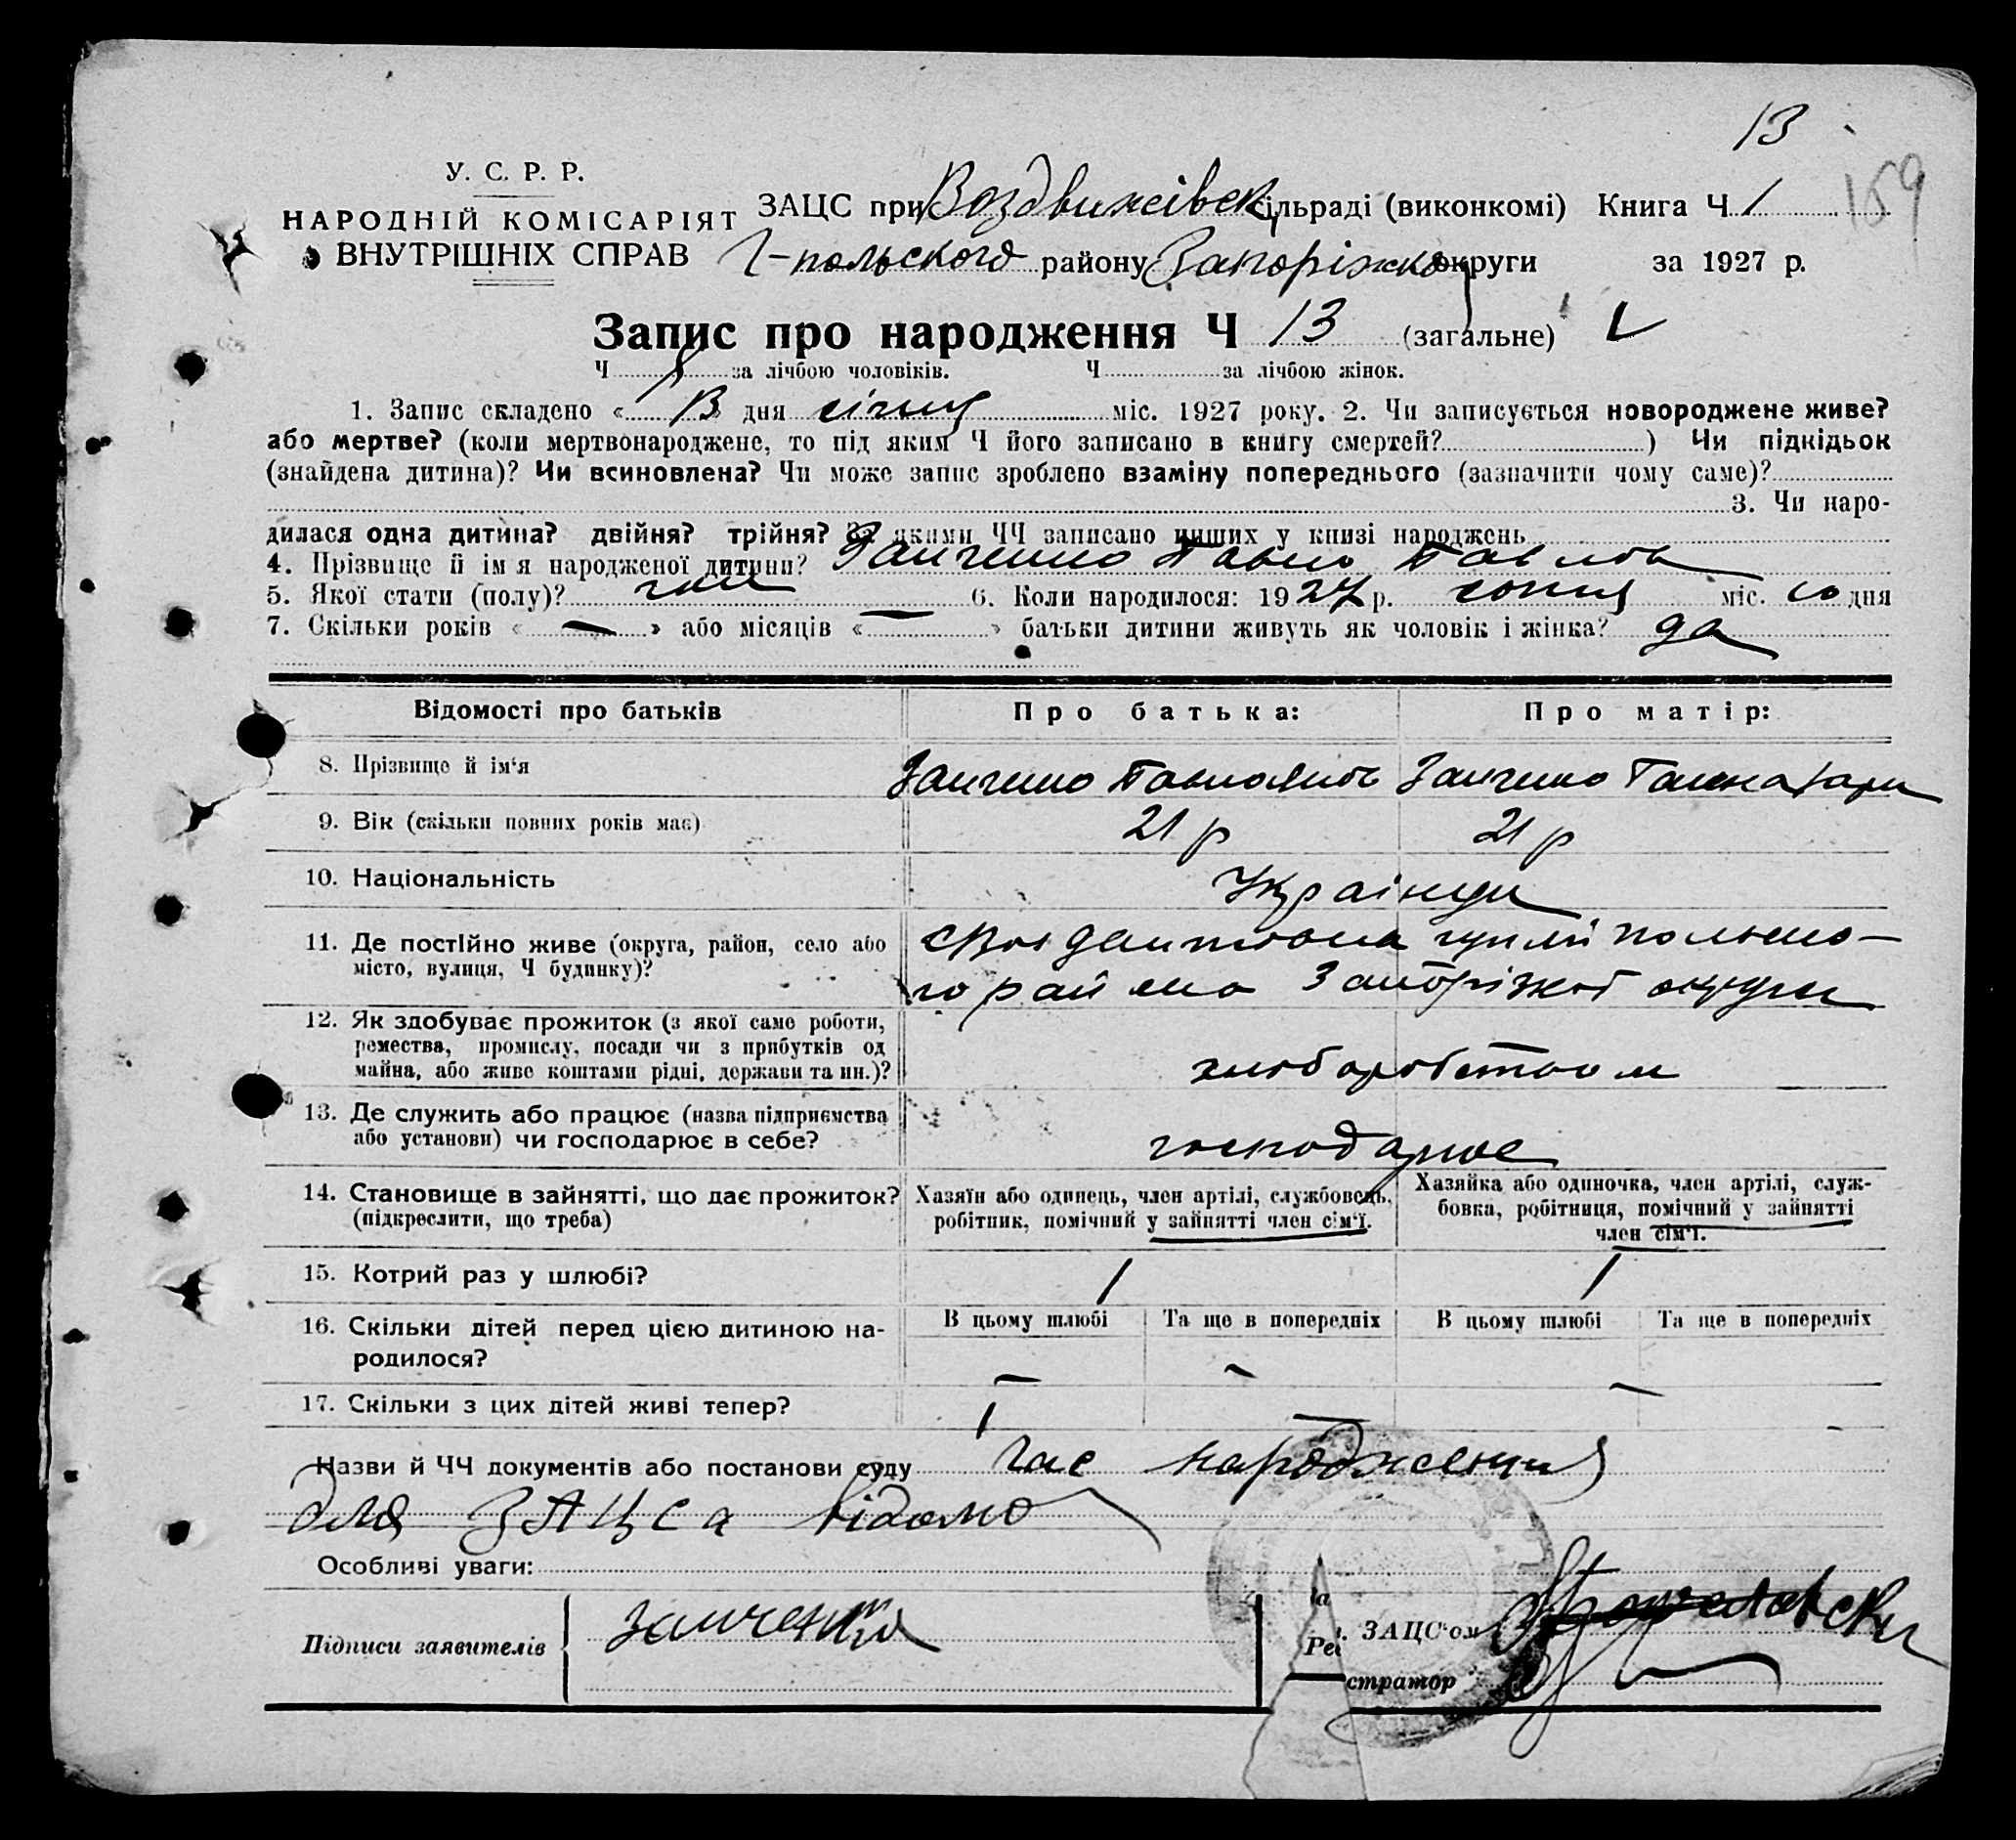 13
159
У. С. Р. Р.
НАРОДНІЙ КОМІСАРІЯТ
ВНУТРІШНІХ СПРАВ
ЗАЦС при Воздвижівск сільраді (виконкомі) Книга Ч 1
Г-польского району Запоріжкої округи за 1927 р.
Запис про народження Ч 13 (загальне)
Ч 8 за лічбою чоловіків. Ч за лічбою жінок.
1. Запис складено « 13 » дня січня міс. 1927 року. 2. Чи записується новороджене живе?
або мертве? (коли мертвонароджене, то під яким Ч його записано в книгу смертей? ) Чи підкідьок
(знайдена дитина)? Чи всиновлена? Чи може запис зроблено взаміну попереднього (зазначити чому саме)?
3. Чи наро-
дилася одна дитина? двійня? трійня? За якими ЧЧ записано инших у книзі народжень
4. Прізвище й ім я народженої дитини? Занченко Павло Павлов
5. Якої стати (полу)? чол 6. Коли народилося: 1927 р. січня міс. 10 дня
7. Скільки років « — » або місяців « — » батьки дитини живуть як чоловік і жінка? да
Відомості про батьків Про батька: Про матір:
8. Прізвище й ім'я Занченко Павло Занченко Ганна
9. Вік (скільки повних років має) 21 р 21 р
10. Національність Українци
11. Де постійно живе (округа, район, село або
місто, вулиця, Ч будинку)?
го району Запоріжкої округи
12. Як здобуває прожиток (з якої саме роботи,
ремества, промислу, посади чи з прибутків од
майна, або живе коштами рідні, держави та ин.)?
хлоборобством
13. Де служить або працює (назва підприємства
або установи) чи господарює в себе?
господарює
14. Становище в зайнятті, що дає прожиток?
(підкреслити, що треба)
Хазяїн або одинець, член артілі, службовець,
робітник, помічний у зайнятті член сім'ї.
Хазяйка або одиночка, член артілі, служ-
бовка, робітниця, помічний у зайнятті
член сім'ї.
15. Котрий раз у шлюбі? 1 1
16. Скільки дітей перед цією дитиною на-
родилося?
В цьому шлюбі Та ще в попередніх В цьому шлюбі Та ще в попередніх
— — —
17. Скільки з цих дітей живі тепер?
Назви й ЧЧ документів або постанови суду час народження
для ЗАЦСа відомо
Особливі уваги:
Підписи заявителів Занченко
ЗАЦС'ом
Реєстратор